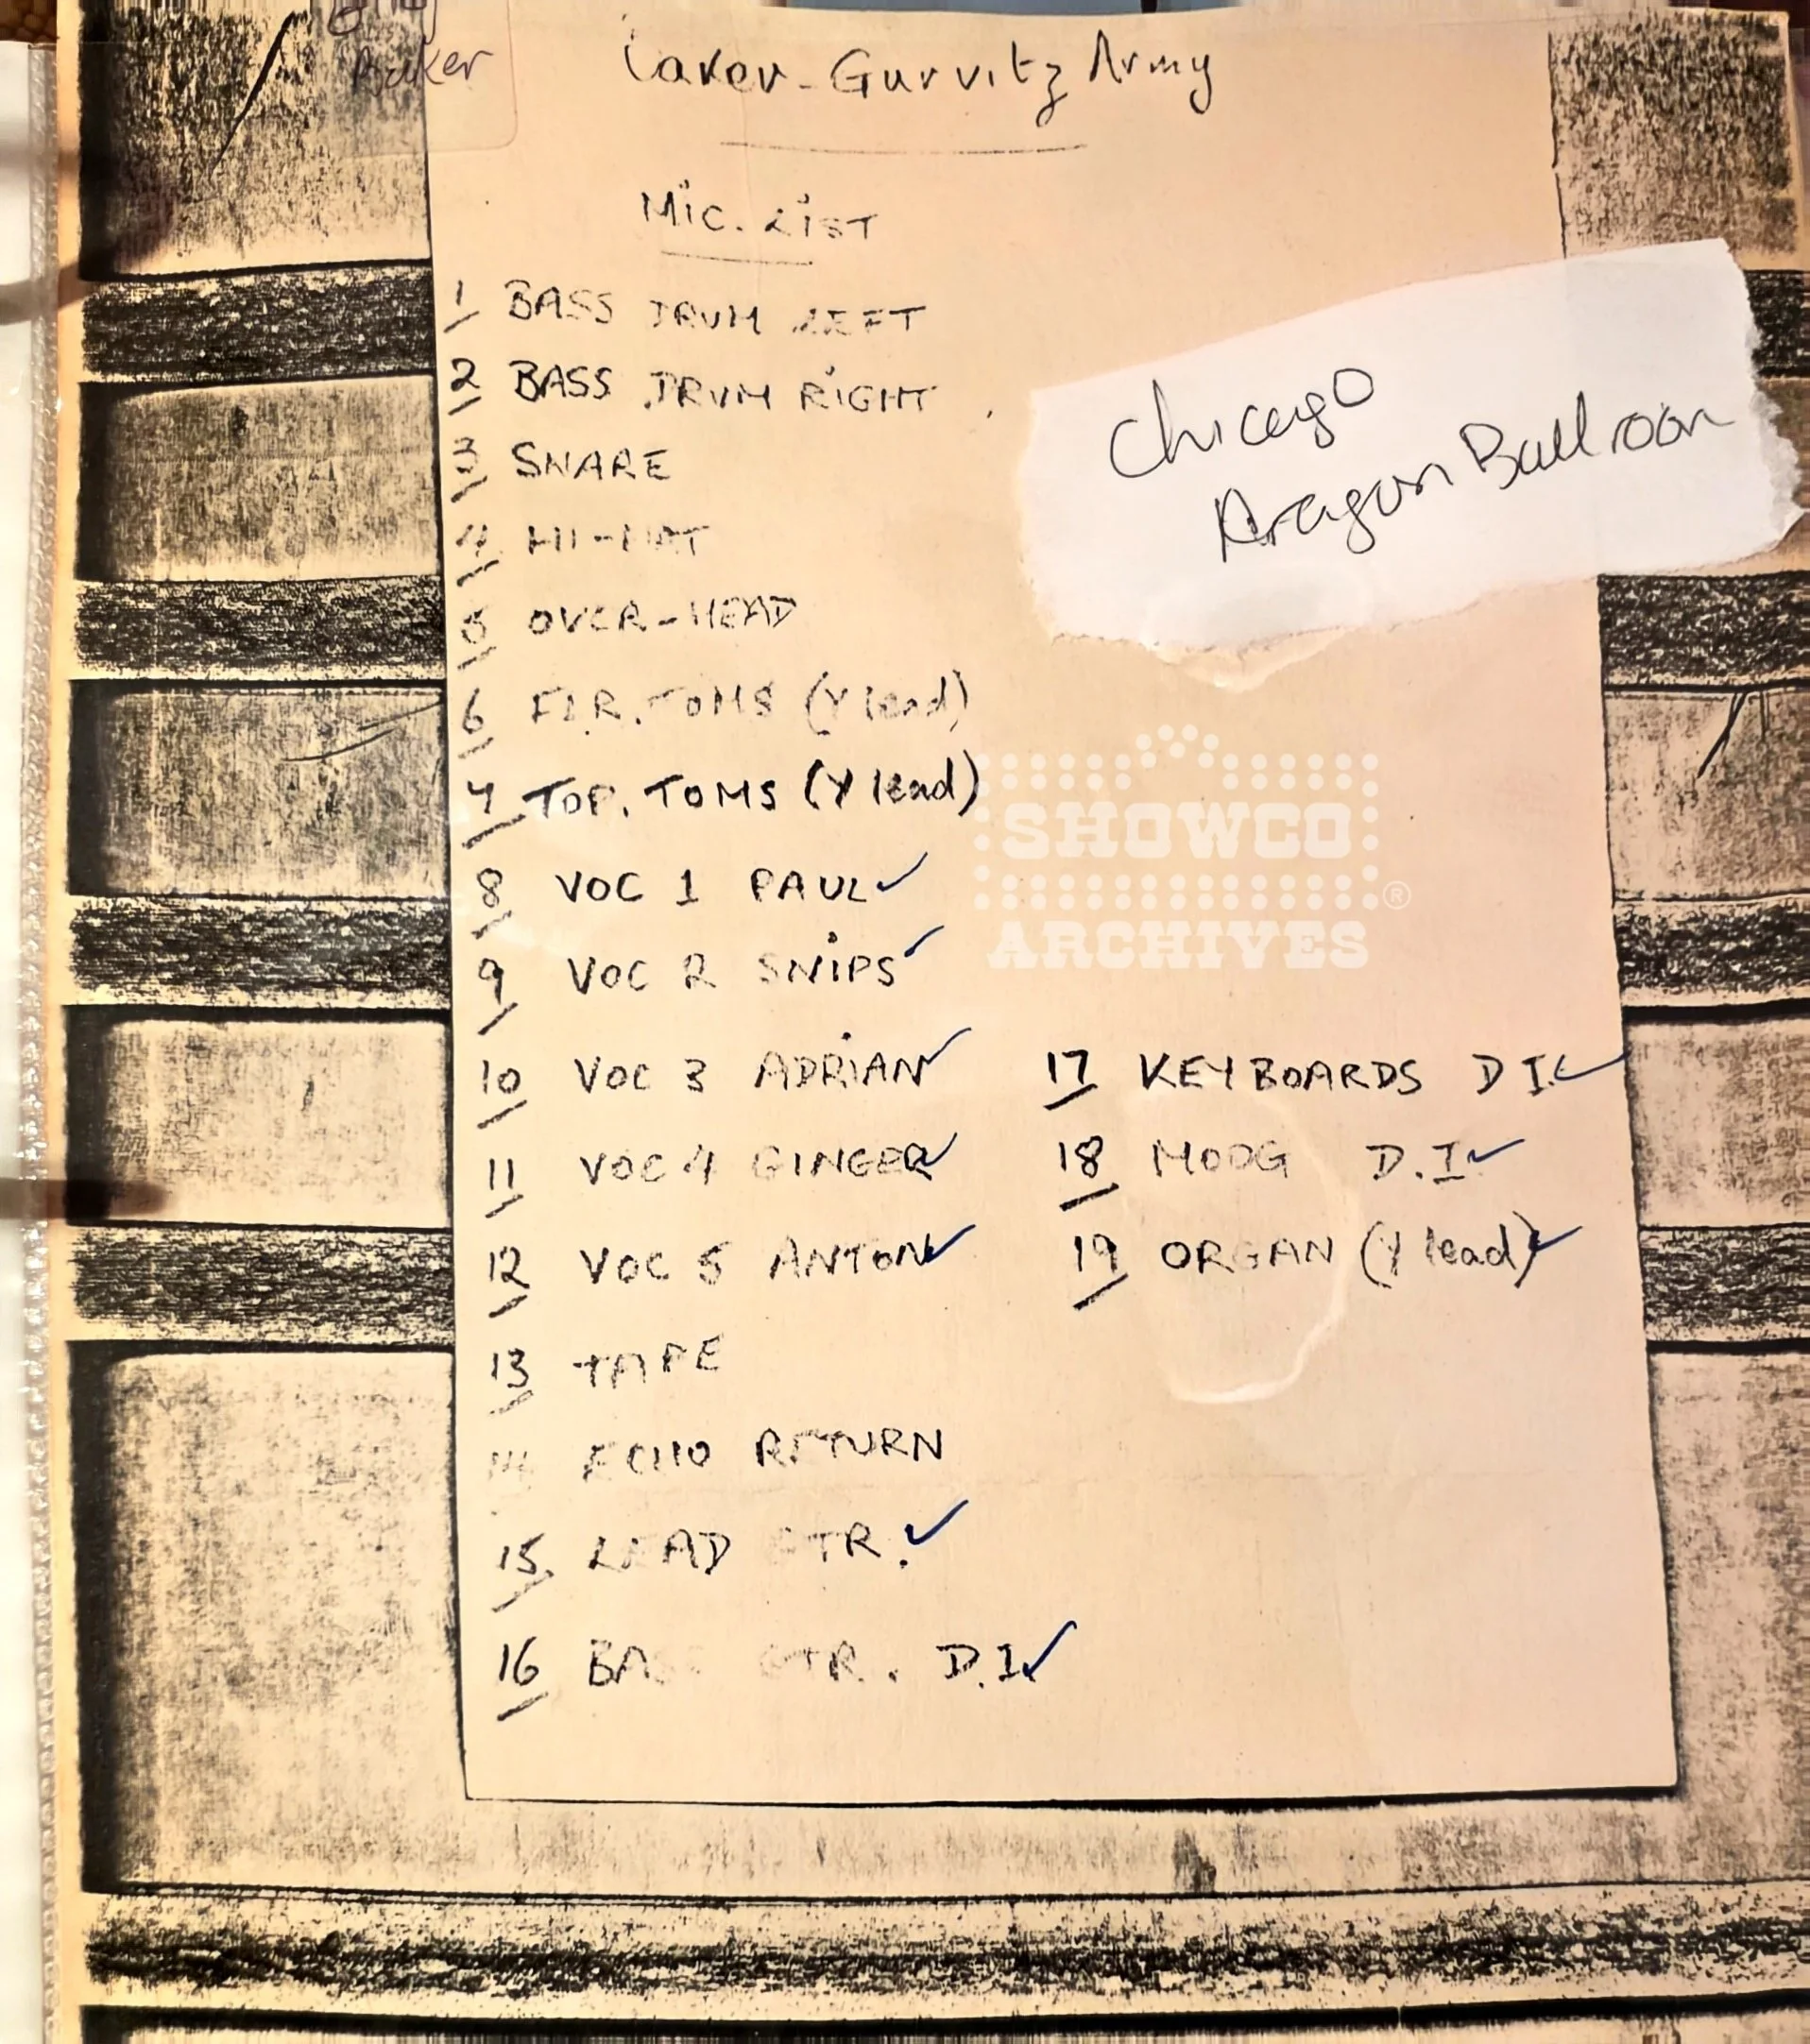 Baker
Gurvitz Army
Mic. LIST
1 BASS DRUM LEFT
2 BASS DRUM RIGHT
3 SNARE
4 HI-HAT
5 OVER-HEAD
6 FLR. TOMS (Y lead)
7 TOP. TOMS (Y lead)
8 VOC 1 PAUL ✓
9 VOC 2 SNIPS ✓
10 VOC 3 ADRIAN ✓
11 VOC 4 GINGER ✓
12 VOC 5 ANTON ✓
13 TAPE
14 ECHO RETURN
15 LEAD GTR. ✓
16 BASS GTR. D.I ✓
17 KEYBOARDS D I. ✓
18 MOOG D.I ✓
19 ORGAN (Y lead) ✓
Chicago
Aragon Ballroom
SHOWCO
®
ARCHIVES